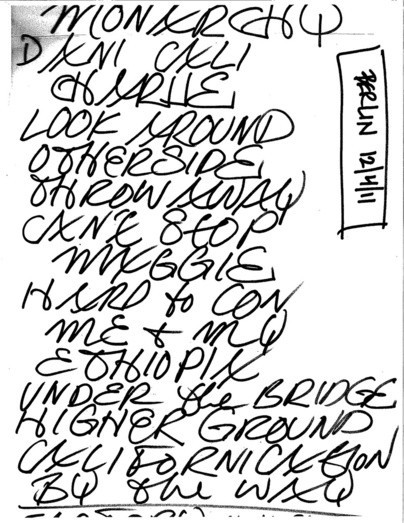 MONARCHY
DANI CALI
CHARLIE
LOOK AROUND
OTHERSIDE
THROW AWAY
CAN'T STOP
MAGGIE
HARD to CON
ME + MY
ETHIOPIA
UNDER the BRIDGE
HIGHER GROUND
CALIFORNICATION
BY the WAY
BERLIN 12/4/11